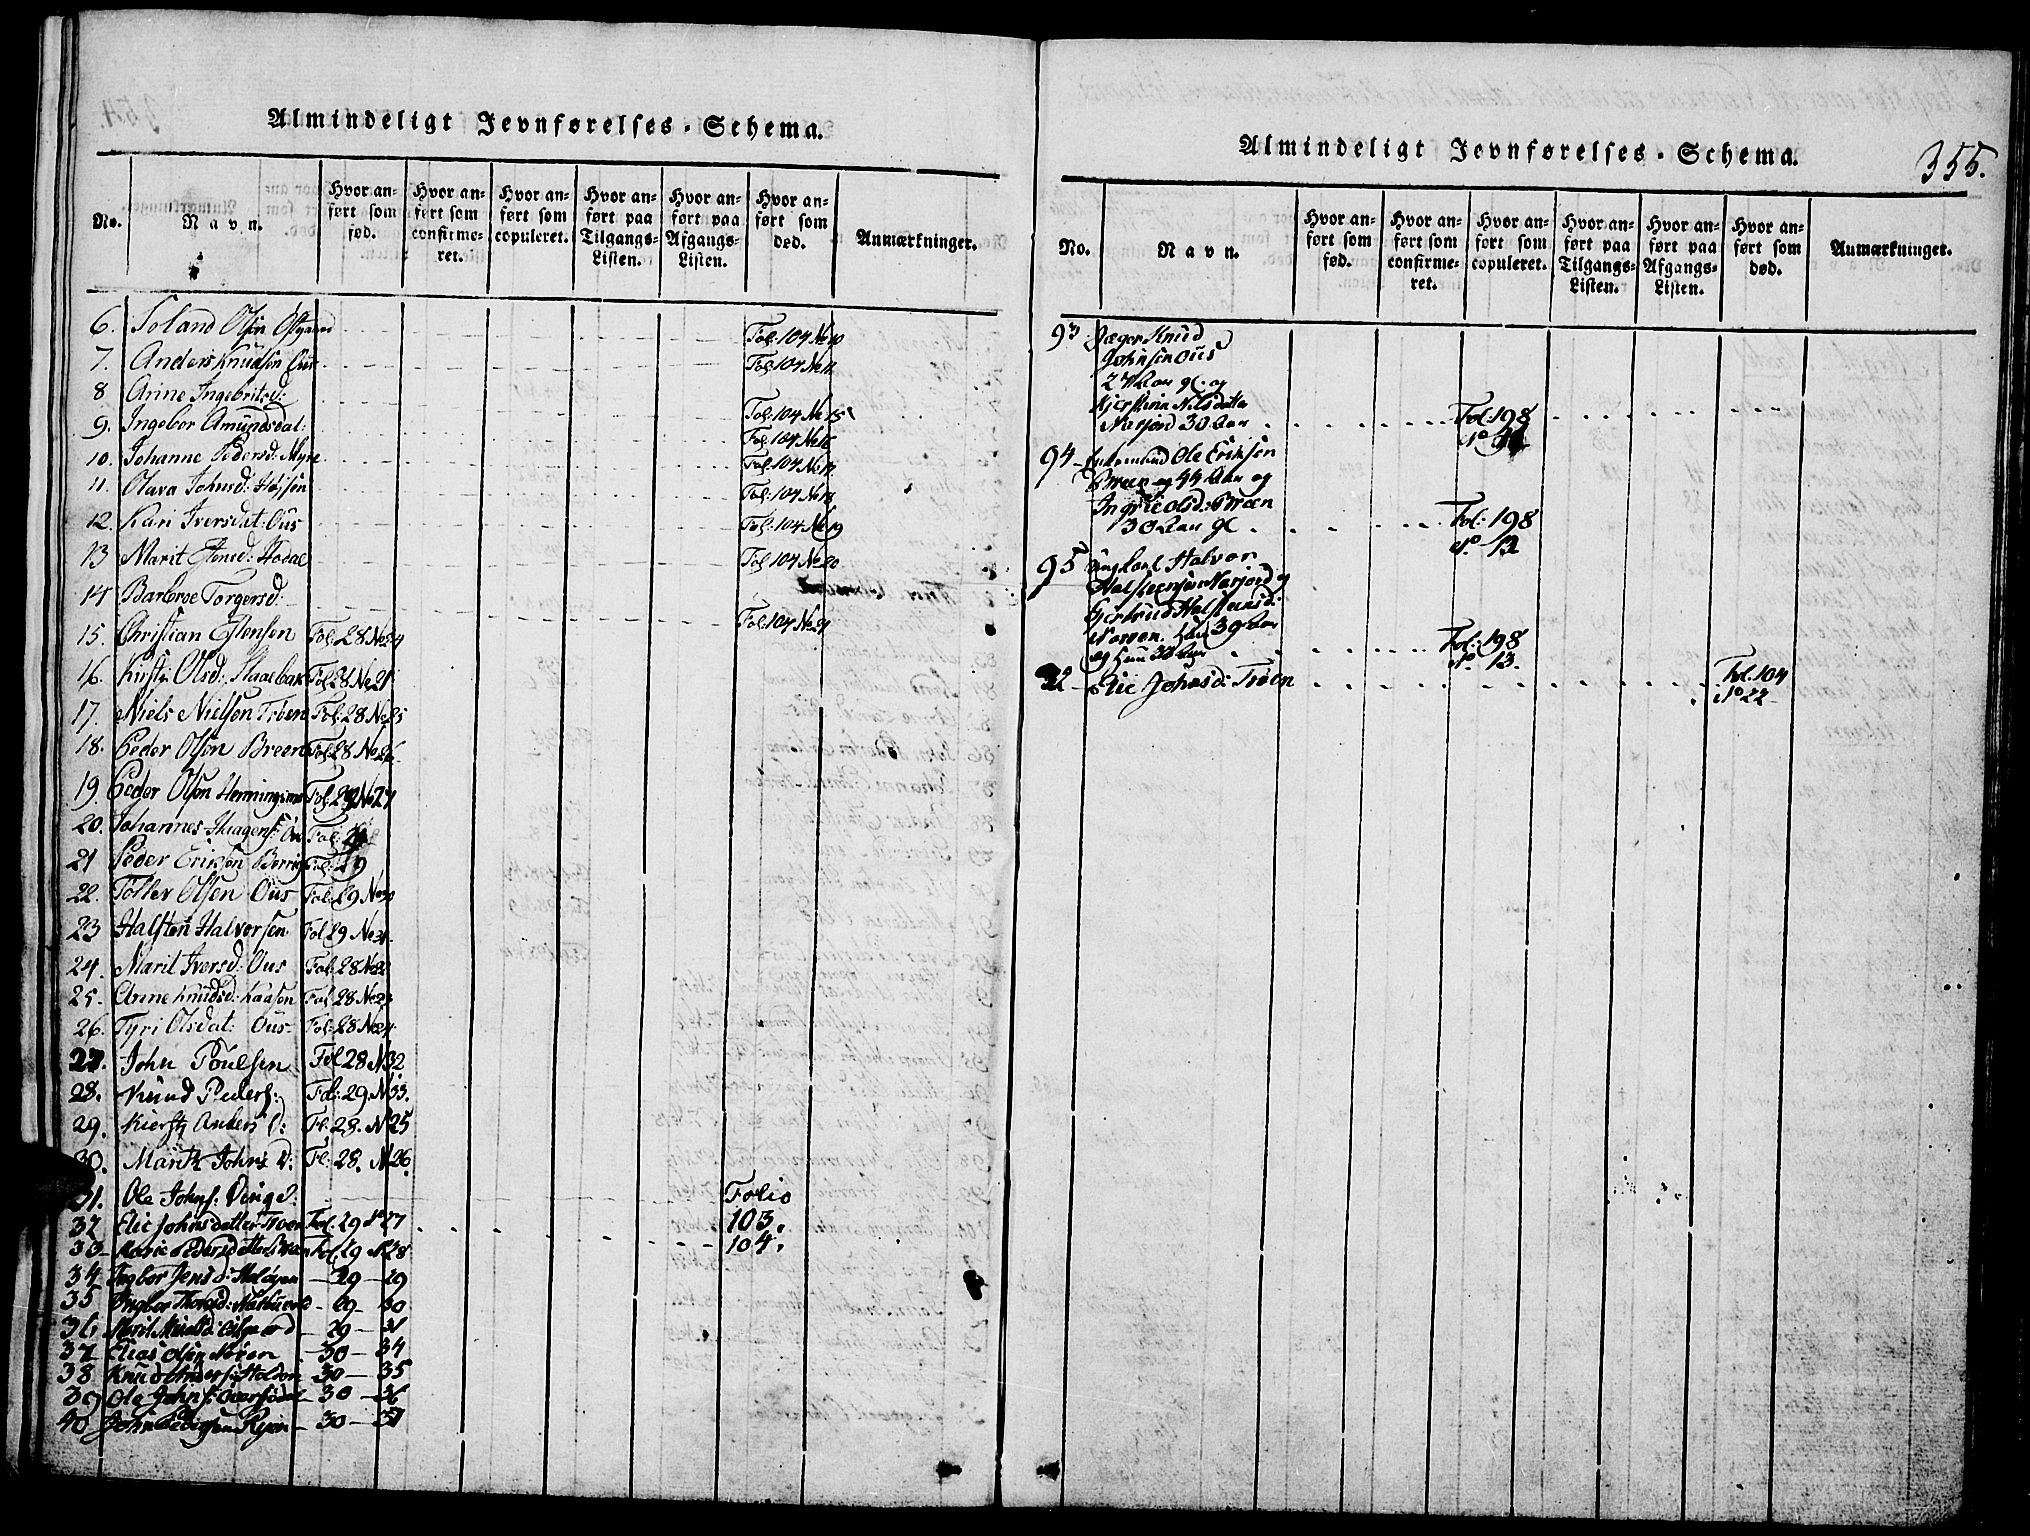 Almindeligt Jevnførelses-Schema.
No.
Navn.
Hvor an-
ført som
fød.
Hvor an-
ført som
confirme-
ret.
Hvor an-
ført som
copuleret.
Hvor an-
ført paa
Tilgangs-
Listen.
Hvor an-
ført paa
Afgangs-
Listen.
Hvor an-
ført som
død.
Anmærkninger.
6. Olsen Fol: 104 No 10
7. Anders Knudsen Ous Fol: 104 No
8 Anne Ingebritsd:
9. Ingebor Amundsdat: Fol: 104 No 15
10. Johanne Pedersd: Myre Fol: 104 No
11. Olava Johnsd: Fol: 104 No
12. Kari Iversdat: Ous Fol: 104 No 19
13 Marit Estensd: Hodal Fol: 104 No 20
14 Barbroe Torgersd:
15. Christian Estensen Fol: 28 No 24 Fol: 104 No 21
16. Olsd: Fol: 28 No 21
17. Niels Nielsen Troen Fol: 28 No 25
18. Peder Olsen Breen Fol: 28 No 26
19. Peder Olsen Henningsmo Fol: No 27
20. Johannes Haagens: Fol:
21 Peder Eriksen Fol: 29
22. Toller Olsen Ous Fol: 29 No 30
23 Halsten Halvorsen Fol 29 No 31
24. Marit Iversd: Ous Fol: 28 No
25. Anne Knudsd: Kaasen Fol 28 No 23
26. Tyri Olsdat: Ous Fol: 28 No 24
27. John Poulsen Fol 28 N 32
28. Knud Peders: Fol: 29. N 33.
29. Kierst Anders D: Fl: 28. N 25
30. Marit Johns D: Fl: 28. N 26
31. Ole Johns. Folio
32 Elie Johnsdatter Troen Fol. 29 No 27 103.
33 Marie Pedersdatter Breen Fol. 29 N 28 104.
34 Ingbor Jensd: 29 29
35 Ingbor 29 30
36 Marit 29 31
37 Elias Olsen 30 34
38 Knud Anders: 30 35
39 Ole Johns: 30 36
40 John 30 37
Almindeligt Jevnførelses-Schema.
355.
No.
Navn.
Hvor an-
ført som
fød.
Hvor an-
ført som
confirme-
ret.
Hvor an-
ført som
copuleret.
Hvor an-
ført paa
Tilgangs-
Listen.
Hvor an-
ført paa
Afgangs-
Listen.
Hvor an-
ført som
død.
Anmærkninger.
93 Jæger Knud
Johnsen Ous
27 Aar gl. og
Kjerstina Nilsdatter
Narjord 30 Aar Fol: 198
No
94 Enkemand Ole Eriksen
Breen og 44 Aar og
Ingrie Olsd: Breen Fol: 198
30 Aar gl No 12
95 Ungkarl Halvor
Halsteensen Narjord og
Gjertrud Halsteensd:
39 Aar Fol: 198
og hun 32 Aar No 13.
Elie Johnsd: Troen Fol. 104
No 22